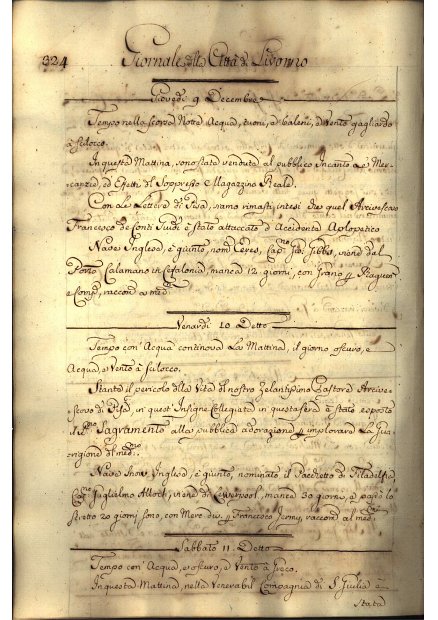 324 Giornale della Città di Livorno
Giovedì 9 Decembre
Tempo nella scorsa Notte Acqua, tuoni, e baleni, e Vento gagliardo
a Silocco.
In questa Mattina, sono state vendute al pubblico Incanto le Mer-
canzie, ed Effetti del Soppresso Magazzino Reale.
Con Le Lettere di Pisa, siamo rimasti intesi che quel Arcivescovo
Francesco de Conti Guidi è stato attaccato d'Accidente Apopletico
Nave Inglese, è giunta, nom. Ceres, Cap.no Gibbs, viene dal
Porto Calamano in Cefalonia, manca 12 giorni, con Grano p.
e Comp., raccom. a med.
Venardì 10 Detto
Tempo con' Acqua continova La Mattina, il giorno oscuro, e
Acqua e Vento a Silocco.
Stante il pericolo della Vita del nostro Zelantissimo Pastore Arcive-
scovo di Pisa, in quest' Insigne Collegiata in questa sera è stato esposto
il SS.mo Sagramento alla pubblica adorazione p. implorare La Gua-
rigione del med.mo
Nave Snow Inglese, è giunto, nominato il Pacchetto di Filadelfia,
Cap.no Guglielmo viene di Liverpool, manca 30 giorni, e passò lo
stretto 20 giorni sono, con Merc. div. p. Francesco Jermy, raccom. al med.
Sabbato 11. Detto
Tempo con' Acqua, e oscuro, e Vento a Greco.
In questa Mattina, nella Venerabil Compagnia di S. Giulia è
Stata